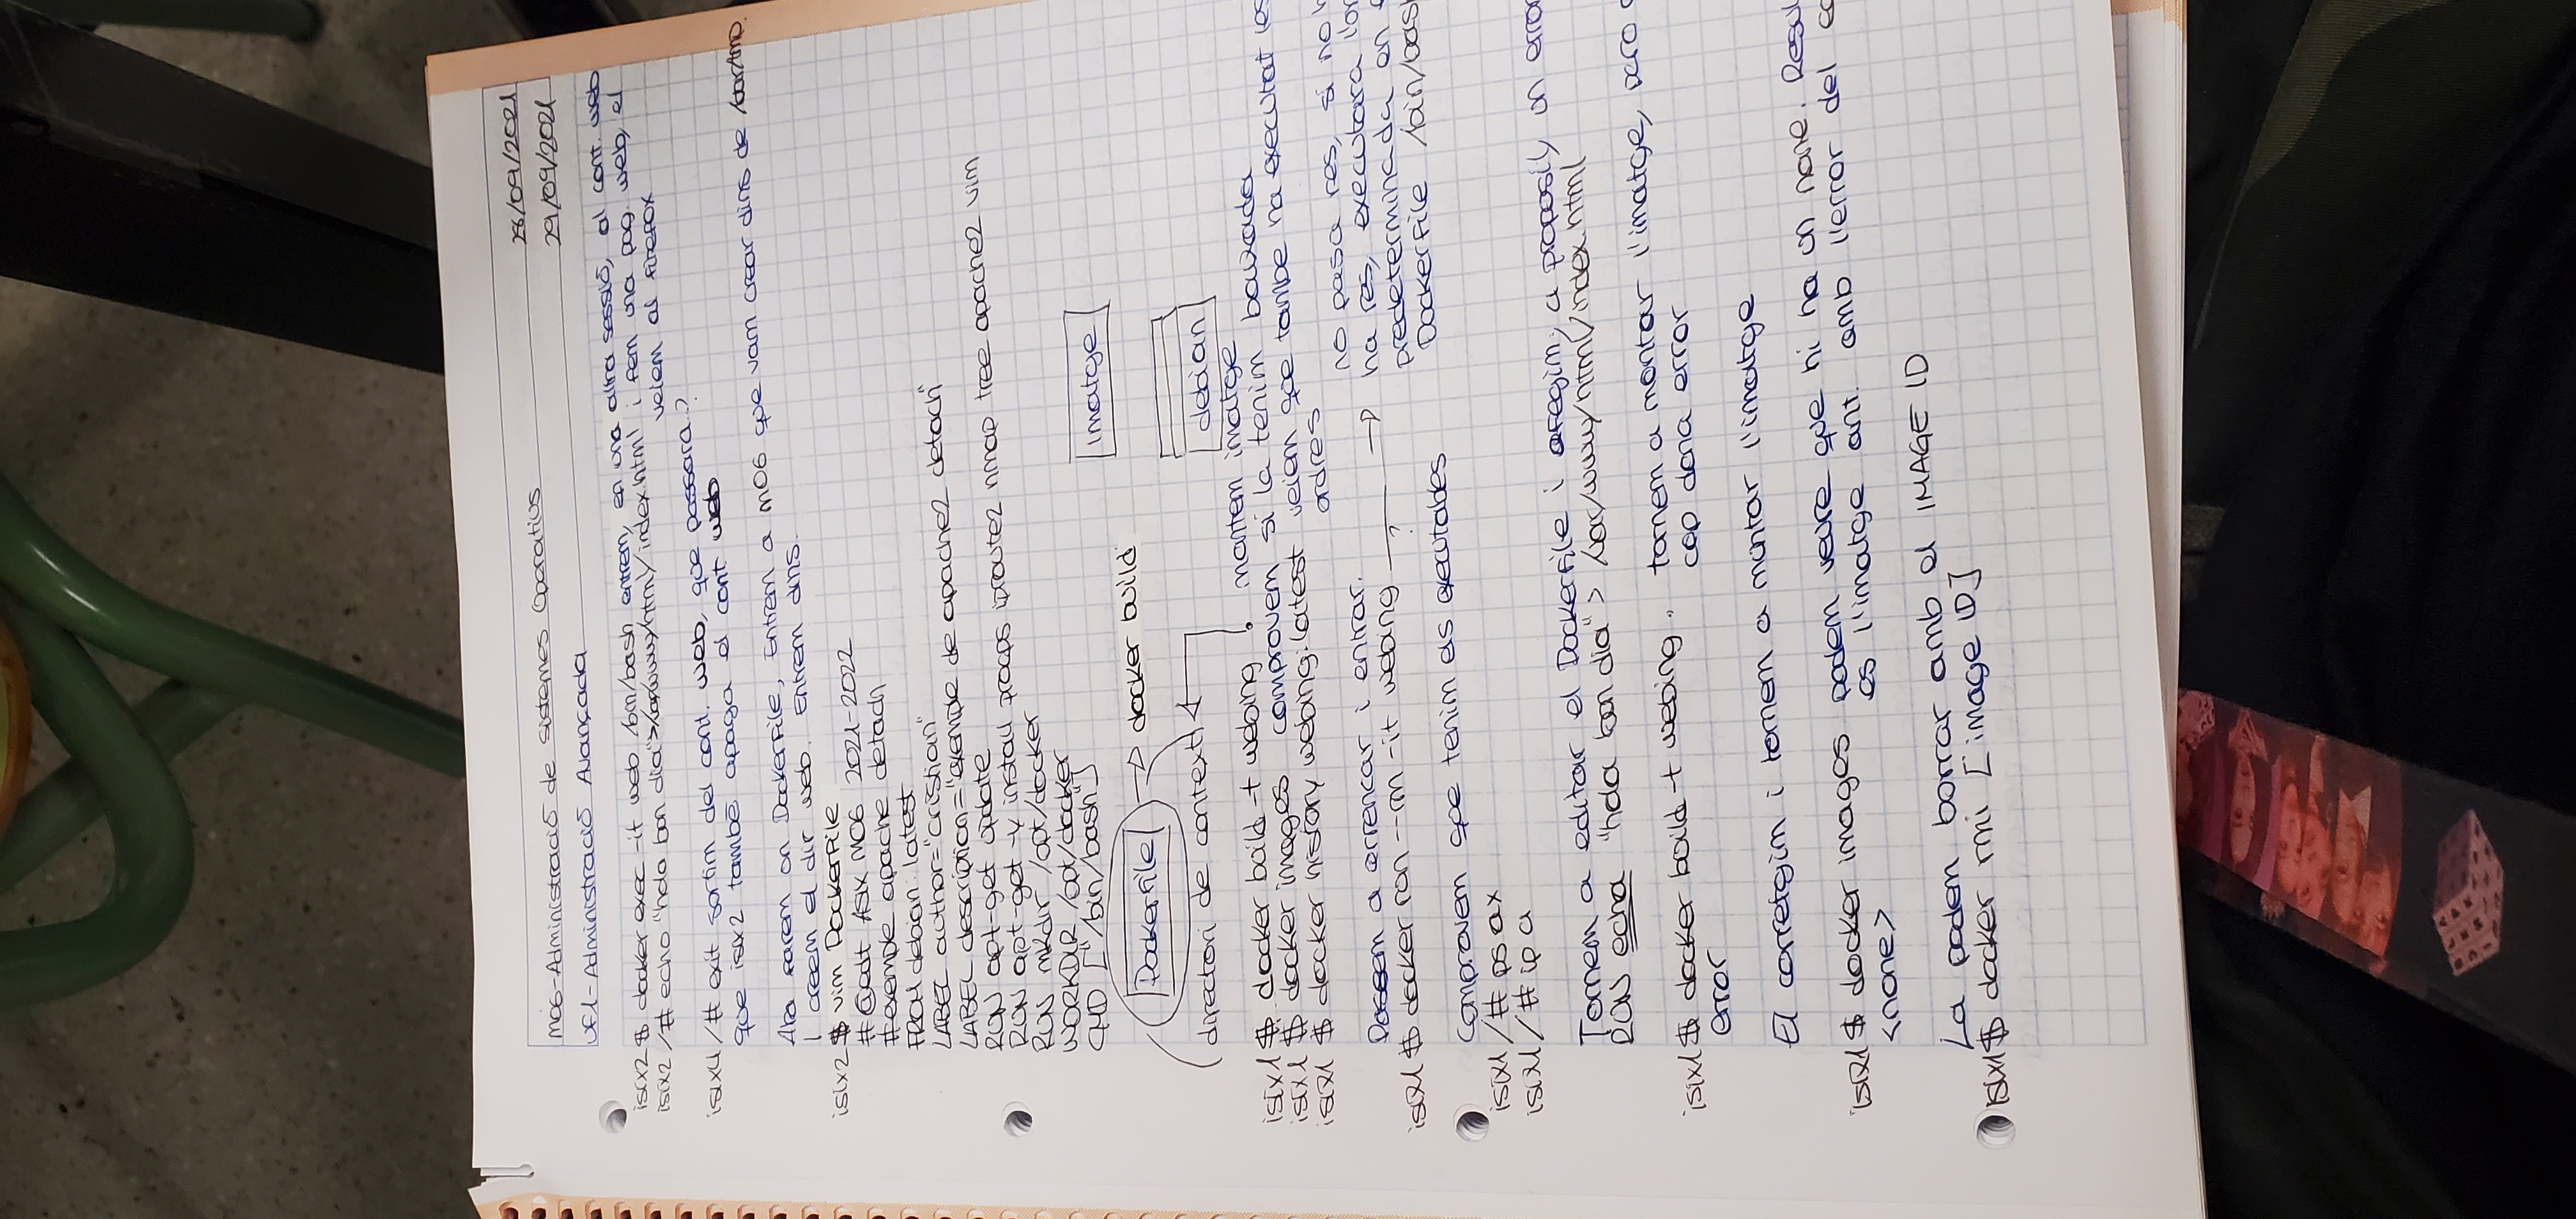 28/09/2021
M06-Administració de Sistemes Operatius
29/09/2021
UF1-Administració Avançada
isix2 $ docker exec -it web /bin/bash entrem, en una altra sessió, al cont. web
isix2 /# echo "hola bon dia">/var/www/html/index.html i fem una pag. web, el
veiem al firefox
isix4 /# exit sortim del cont. web, que passara?
que isix2 també apaga el cont web
Ara farem un Dockerfile, Entrem a M06 que vam crear dins de /var/tmp.
I creem el dir web. Entrem dins.
isix2 $ vim Dockerfile
#@edt ASIX M06 2021-2022
#exemple apache detach
FROM debian:latest
LABEL author="cristian"
LABEL description="exemple de apache2 detach"
RUN apt-get update
RUN apt-get -y install procps iproute2 nmap tree apache2 vim
RUN mkdir /opt/docker
WORKDIR /opt/docker
CMD ["/bin/bash"]
imatge
Dockerfile → docker build
directori de context
debian
isix1 $ docker build -t webing . montem imatge
isix1 $ docker images comprovem si la tenim baixada
isix1 $ docker history webing:latest veiem que tambe ha executat les
ordres
Passem a errencar i entrar.
isix1 $ docker run --rm -it webing ___?___ → no pasa res, si no h
ha res, executara l'or
predeterminada en
Dockerfile /bin/bash
Comprovem que tenim els executables
isix1 /# ps ax
isix1 /# ip a
Tornem a editar el Dockerfile i afegim, a proposit, un error
RUN echa "hola bon dia" > /var/www/html/index.html
isix1 $ docker build -t webing . tornem a montar l'imatge, pero
cop dona error
error
El corretgim i tornem a muntar l'imatge
isix1 $ docker images podem veure que hi ha un none. Resul
es l'imatge ant. amb l'error del ec
<none>
La podem borrar amb el IMAGE ID
isix1 $ docker rmi [image ID]